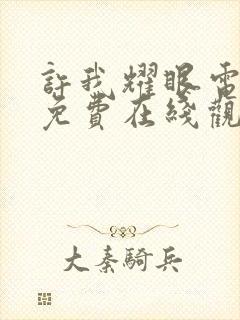 許我耀眼電
免費在綫觀
大秦騎兵